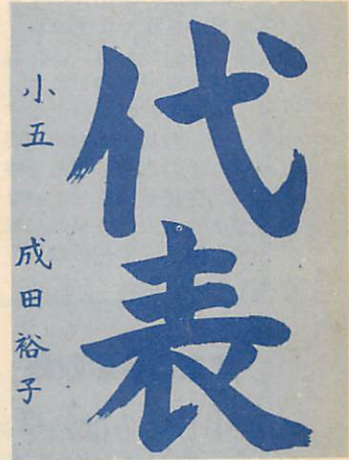 代表
小五 成田裕子